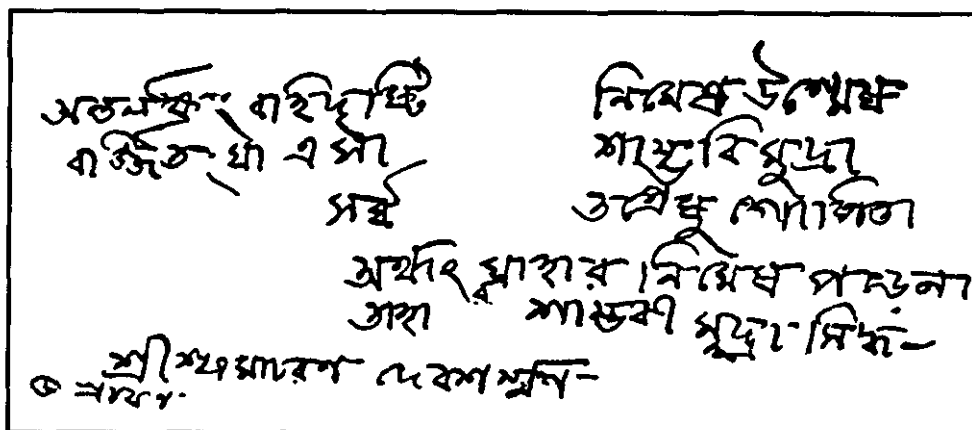 অন্তর্লক্ষ্যং বাহিদৃষ্টি নিমেষ উন্মেষ
বর্জ্জিত এসা শাম্ভবি মুদ্রা
সর্ব্ব তন্ত্রেষু গোপিতা
অর্থাৎ যাহার নিমেষ পড়েনা
তাহা শাম্ভবী মুদ্রা সিদ্ধ—
শ্রীশ্যমাচরণ দেবশর্ম্মণ—